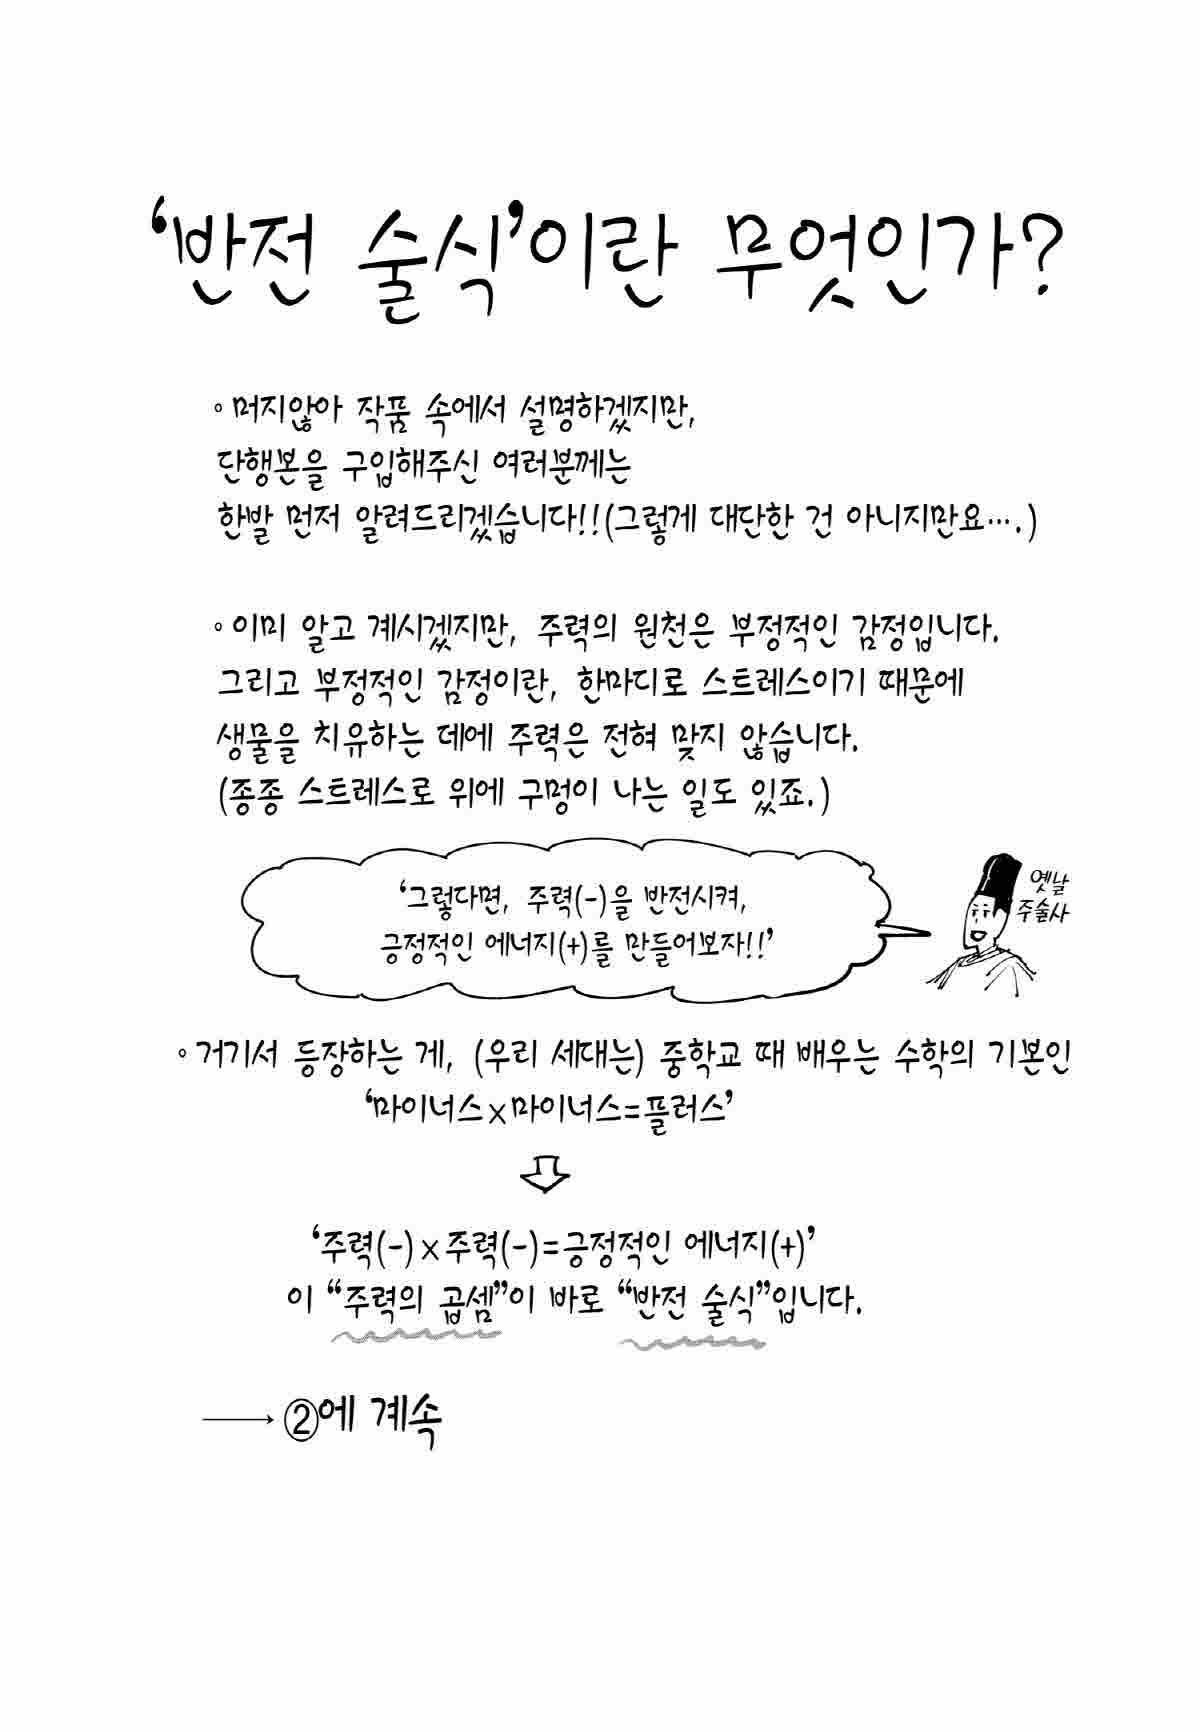 ‘반전 술식’이란 무엇인가?
◦머지않아 작품 속에서 설명하겠지만,
단행본을 구입해주신 여러분께는
한발 먼저 알려드리겠습니다!!(그렇게 대단한 건 아니지만요….)
◦이미 알고 계시겠지만, 주력의 원천은 부정적인 감정입니다.
그리고 부정적인 감정이란, 한마디로 스트레스이기 때문에
생물을 치유하는 데에 주력은 전혀 맞지 않습니다.
(종종 스트레스로 위에 구멍이 나는 일도 있죠.)
‘그렇다면, 주력(-)을 반전시켜,
긍정적인 에너지(+)를 만들어보자!!’
옛날
주술사
◦거기서 등장하는 게, (우리 세대는) 중학교 때 배우는 수학의 기본인
‘마이너스×마이너스=플러스’
‘주력(-)×주력(-)=긍정적인 에너지(+)’
이 “주력의 곱셈”이 바로 “반전 술식”입니다.
→ ②에 계속